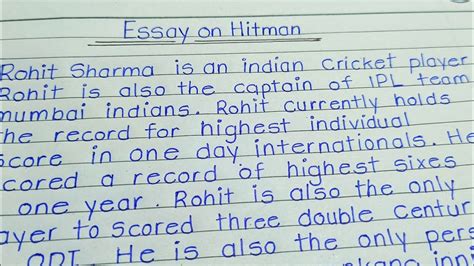 Essay on Hitman
Rohit Sharma is an indian Cricket player
Rohit is also the captain of IPL team
mumbai indians. Rohit currently holds
he record for highest individual
score in one day internationals. He
cored a record of highest sixes
one year. Rohit is also the only
ayer to scored three double centur
ODI. He is also the only pers
inn